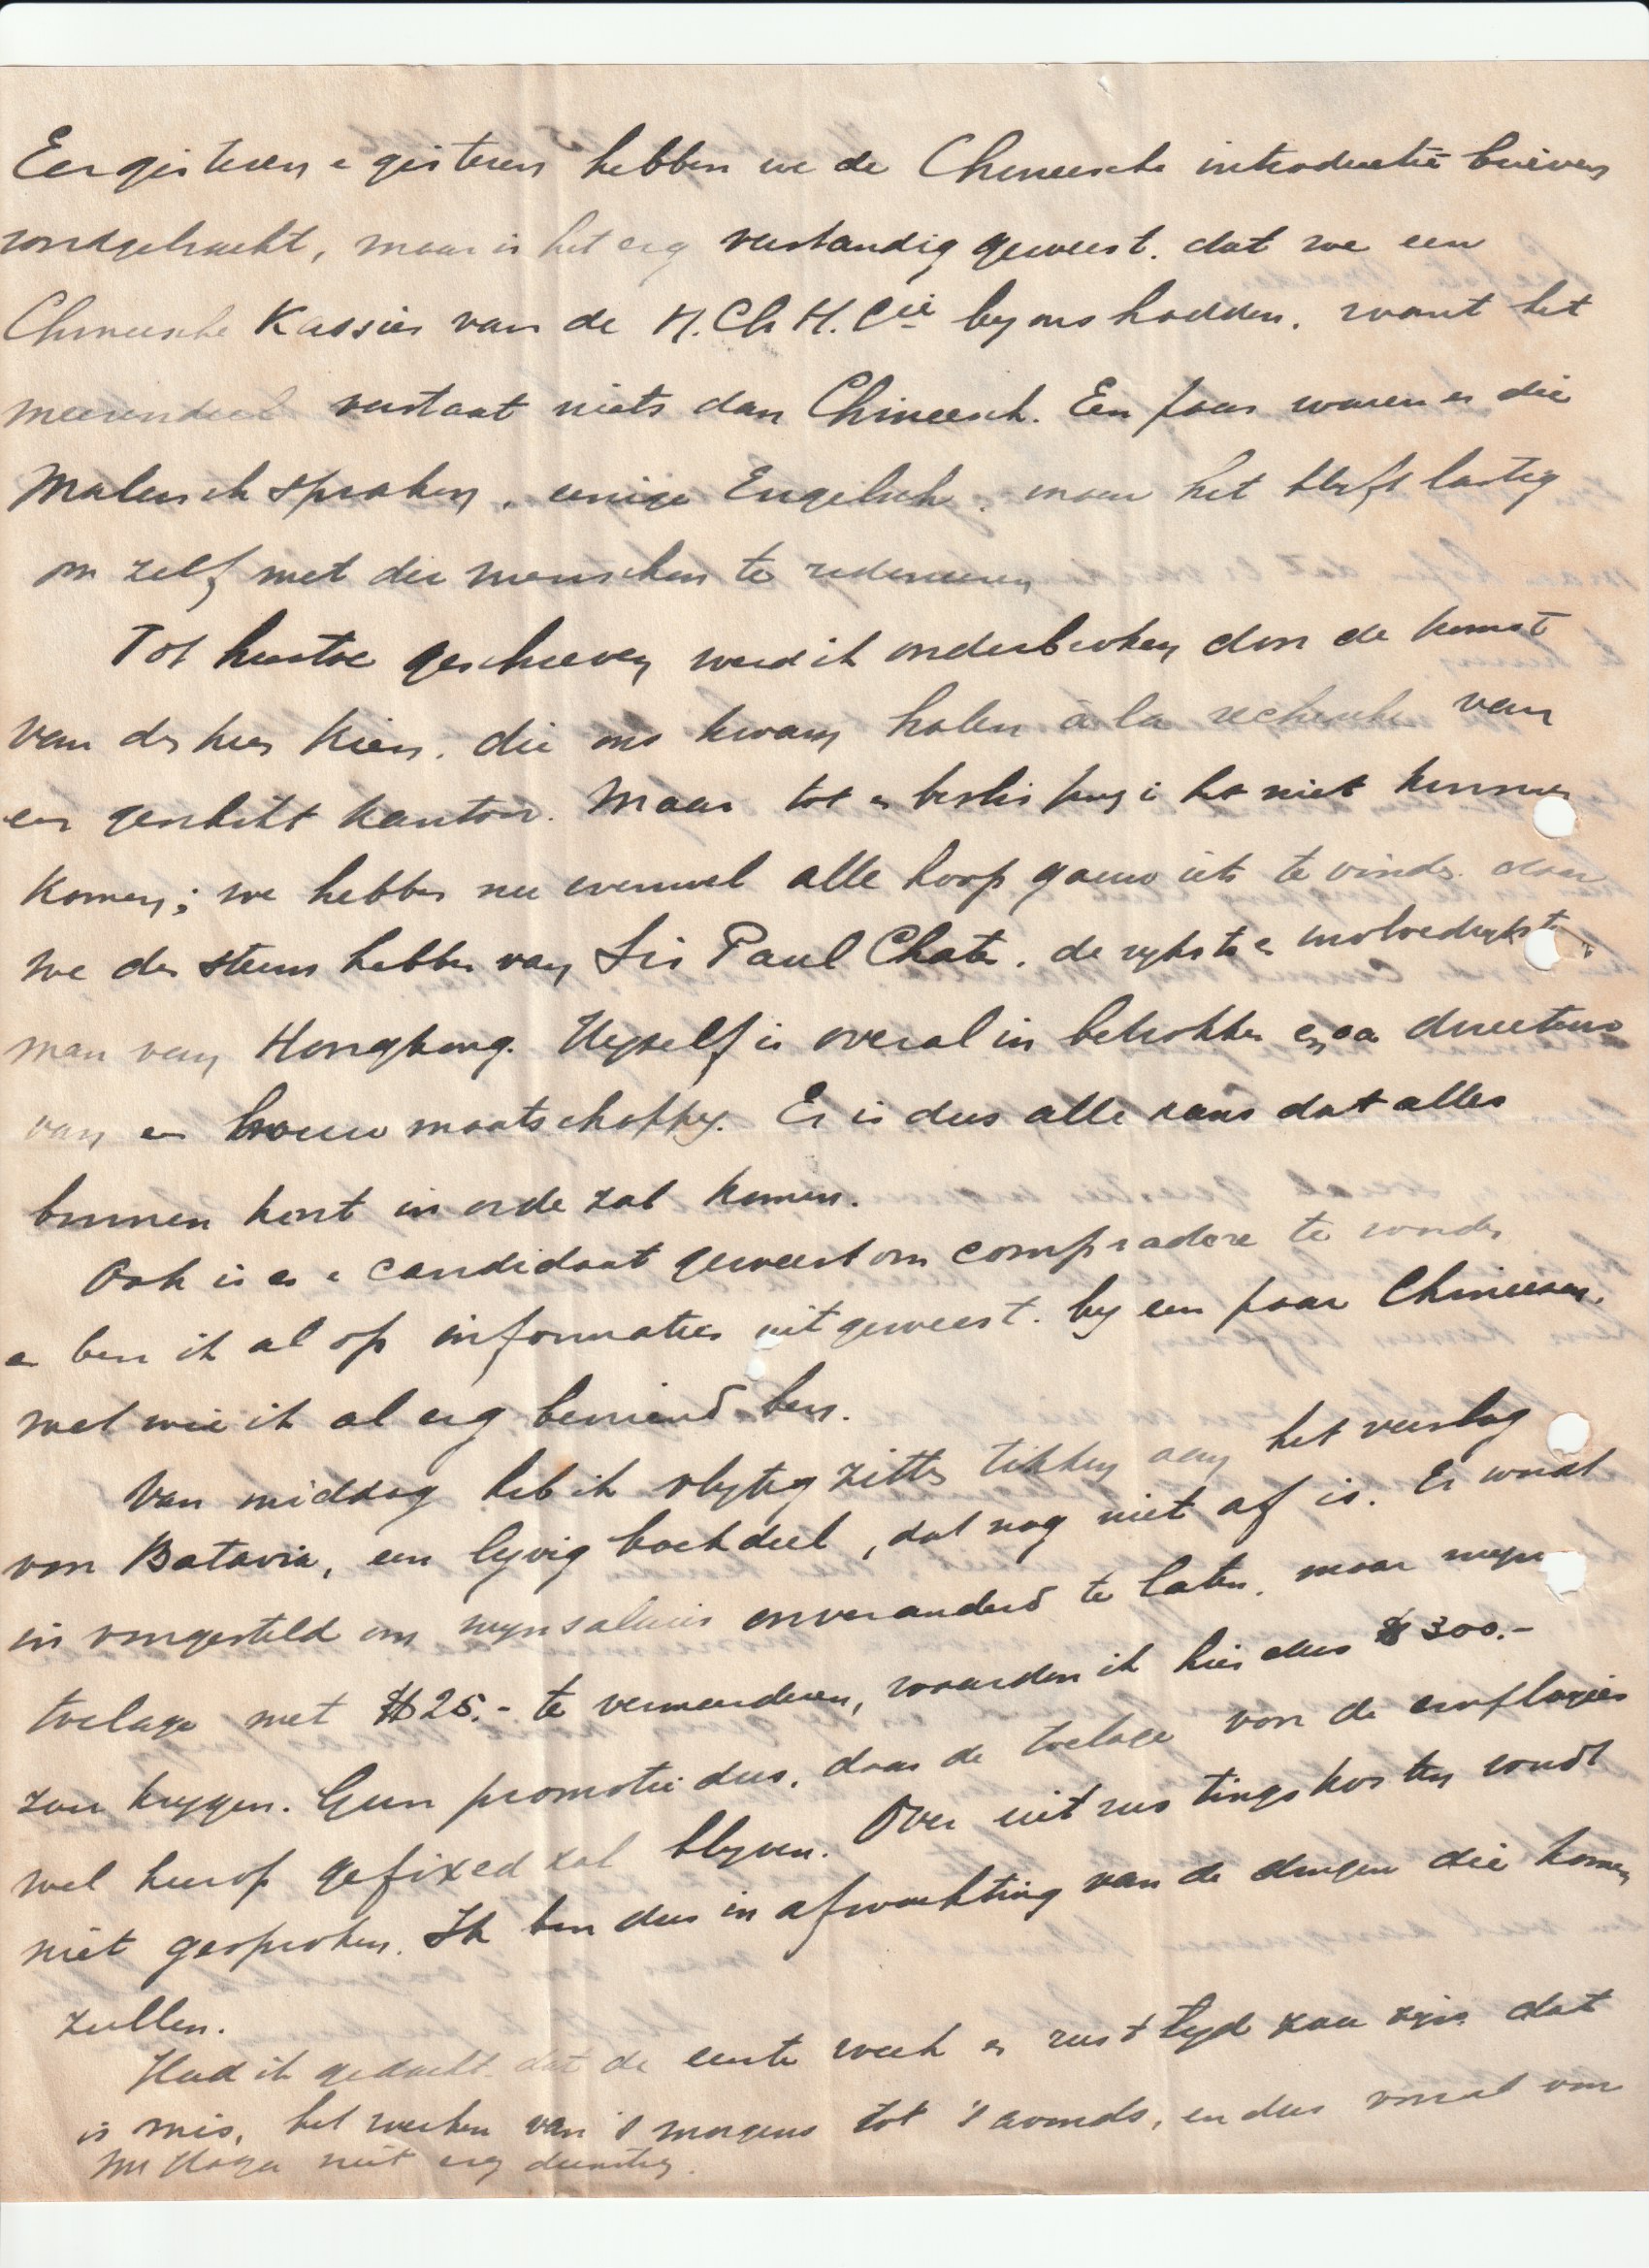 Eergisteren & gisteren hebben we de Chineesche introductie brieven
rondgebracht, maar is het erg verstandig geweest, dat we een
Chineesche Kassier van de N.Ch.H.Cie by ons hadden, want het
meerendeel verstaat niets dan Chineesch. Een paar waren er die
Maleisch spraken, eenige Engelsch, maar het blyft lastig
om zelf met die menschen te redeneeren
Tot hiertoe geschreven werd ik onderbroken door de komst
van de heer Kien, die ons kwam halen à la recherche van
een geschikt kantoor. Maar tot een beslissing is het niet kunnen
komen; we hebben nu evenwel alle hoop gauw iets te vinden daar
we den steun hebben van Sir Paul Chater, de rykste & invloedrykste
man van Hongkong. Hyzelf is overal in betrokken en oa directeur
van een bouw maatschappy. Er is dus alle kans dat alles
binnen kort in orde zal komen.
Ook is er een candidaat geweest om compradore te worden
en ben ik al op informaties uitgeweest by een paar Chineezen,
met wie ik al erg bevriend ben.
Van middag heb ik vlytig zitten tikken aan het verslag
van Batavia, een lyvig boekdeel, dat nog niet af is. Er wordt
in voorgesteld om myn salaris onveranderd te laten, maar myn
toelage met $ 25.- te vermeerderen, waardoor ik hier dus $ 300.-
zou krygen. Geen promotie dus, daar de toelage voor de employées
wel hierop gefixed zal blyven. Over uitrustingskosten wordt
niet gesproken. Ik ben dus in afwachting van de dingen die komen
zullen.
Had ik gedacht dat de eerste week een rusttyd zou zyn dat
is mis, het werken van 's morgens tot 's avonds, en dus vooral voor
Mr Haga niet erg dienstig.